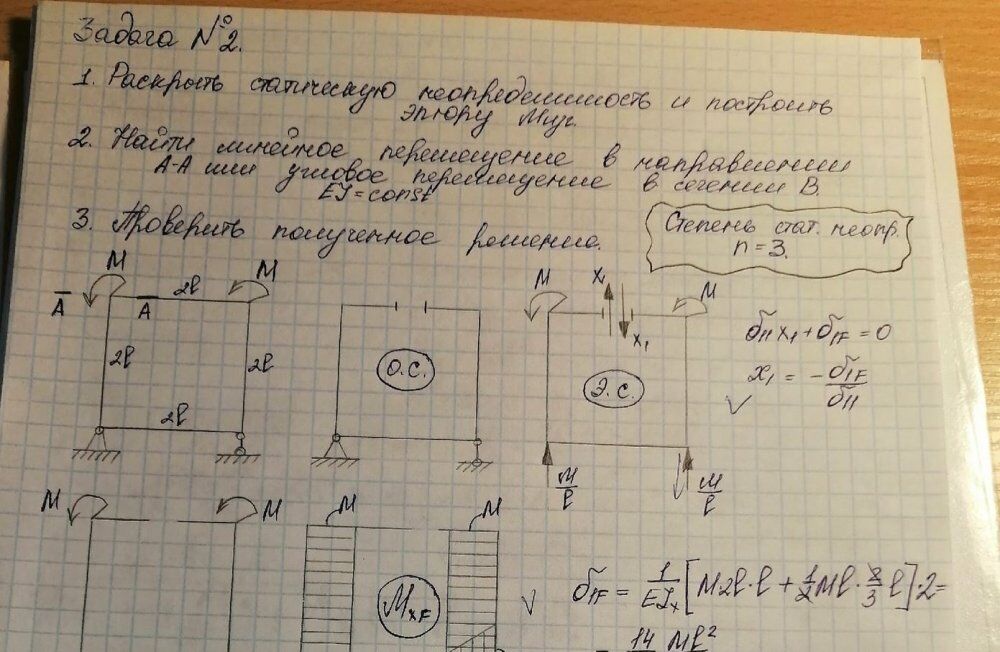 Задача №2.
1. Раскрыть статическую неопределимость и построить
эпюру Mизг.
2. Найти линейное перемещение в направлении
А-А или угловое перемещение в сечении В.
EJ = const
3. Проверить полученное решение.
Степень стат. неопр.
n = 3.
M
M
2l
A
A
2l
2l
2l
О.С.
M
x₁
M
x₁
Э.С.
M/l
M/l
δ₁₁x₁ + δ₁F = 0
x₁ = - δ₁F/δ₁₁
M
M
M
M
MxF
δ₁F = 1/EJx [M2l·l + 1/2 Ml · 2/3 l]·2 =
= 14 Ml²